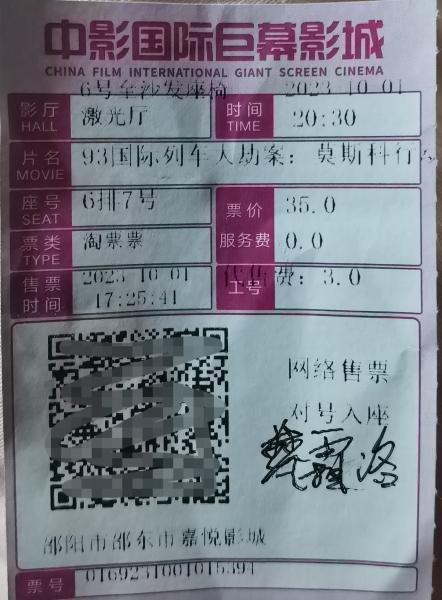 中影国际巨幕影城
CHINA FILM INTERNATIONAL GIANT SCREEN CINEMA
6号全沙发座椅 2023-10-01
影厅 激光厅 时间 20:30
HALL TIME
片名 93国际列车大劫案：莫斯科行
MOVIE
座号 6排7号 票价 35.0
SEAT
票类 淘票票 服务费 0.0
TYPE
售票 2023-10-01 费：3.0
时间 17:25:41 工号
网络售票
对号入座
邵阳市邵东市嘉悦影城
票号 0169231001015394